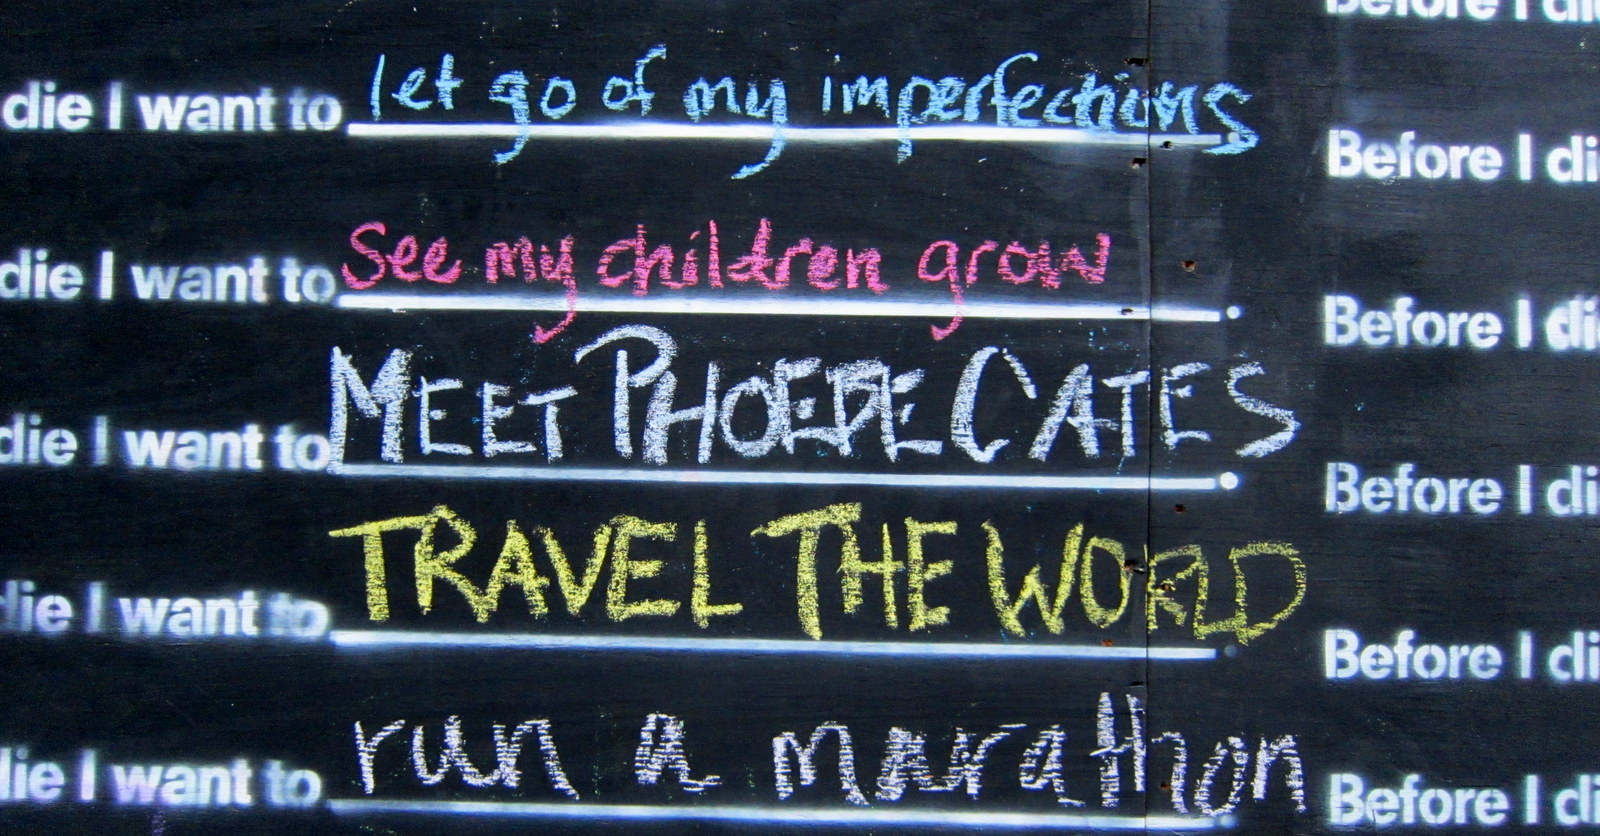 Before I di
die I want to let go of my imperfections
Before I di
die I want to See my children grow
Before I di
die I want to MEET PHOEBE CATES
Before I di
die I want to TRAVEL THE WORLD
Before I di
die I want to run a marathon
Before I di